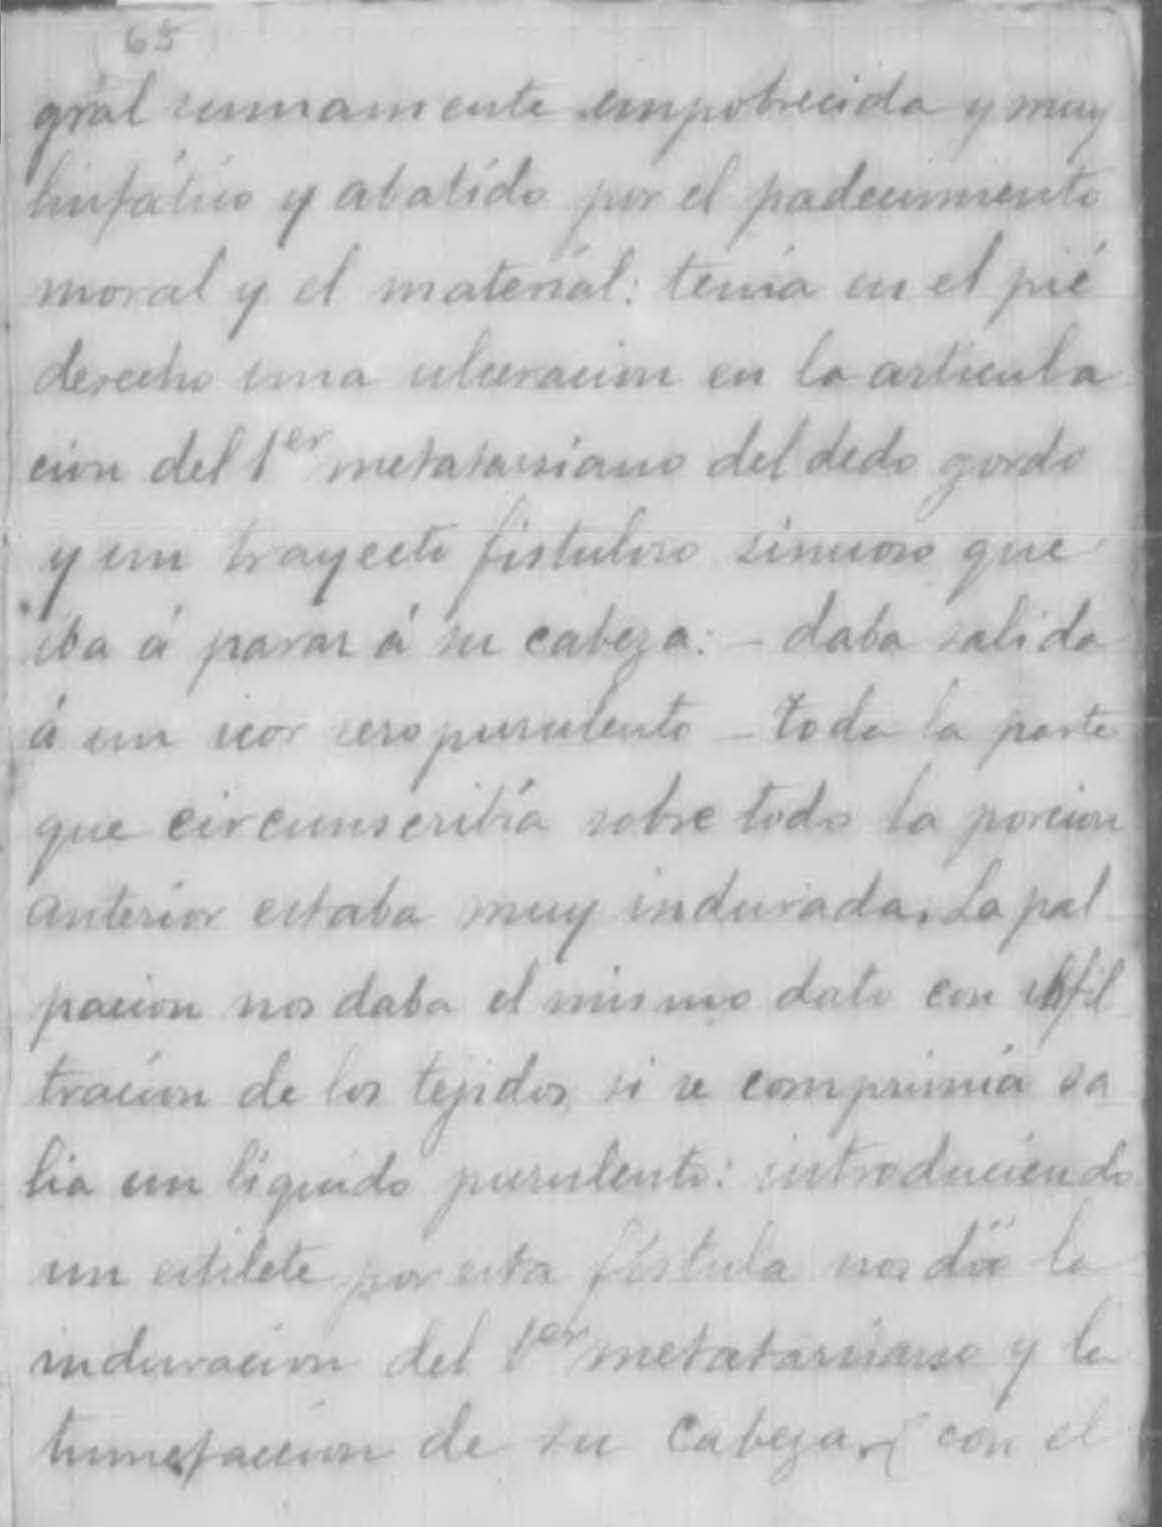 65
gral sumamente empobrecida y muy
linfático y abatido por el padecimiento
moral y el material: tenia en el pié
derecho una ulceracion en la articula
cion del 1er metatarsiano del dedo gordo
y un trayecto fistuloso sinuoso que
iba á parar á su cabeza: - daba salida
á un icor seropurulento - toda la parte
que circunscribía sobre todo la porcion
anterior estaba muy indurada. La pal
pacion nos daba el mismo dato con infil
tracion de los tejidos, si se comprimía sa
lia un líquido purulento: introduciendo
un estilete por esta fístula nos dió la
induracion del 1er metatarsiano y la
tumefaccion de su cabeza, con el